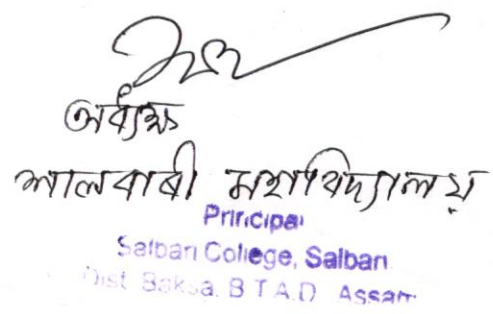 অধ্যক্ষ
শালবাৰী মহাবিদ্যালয়
Principal
Salbari College, Salbari
Dist Baksa. B T A.D Assam